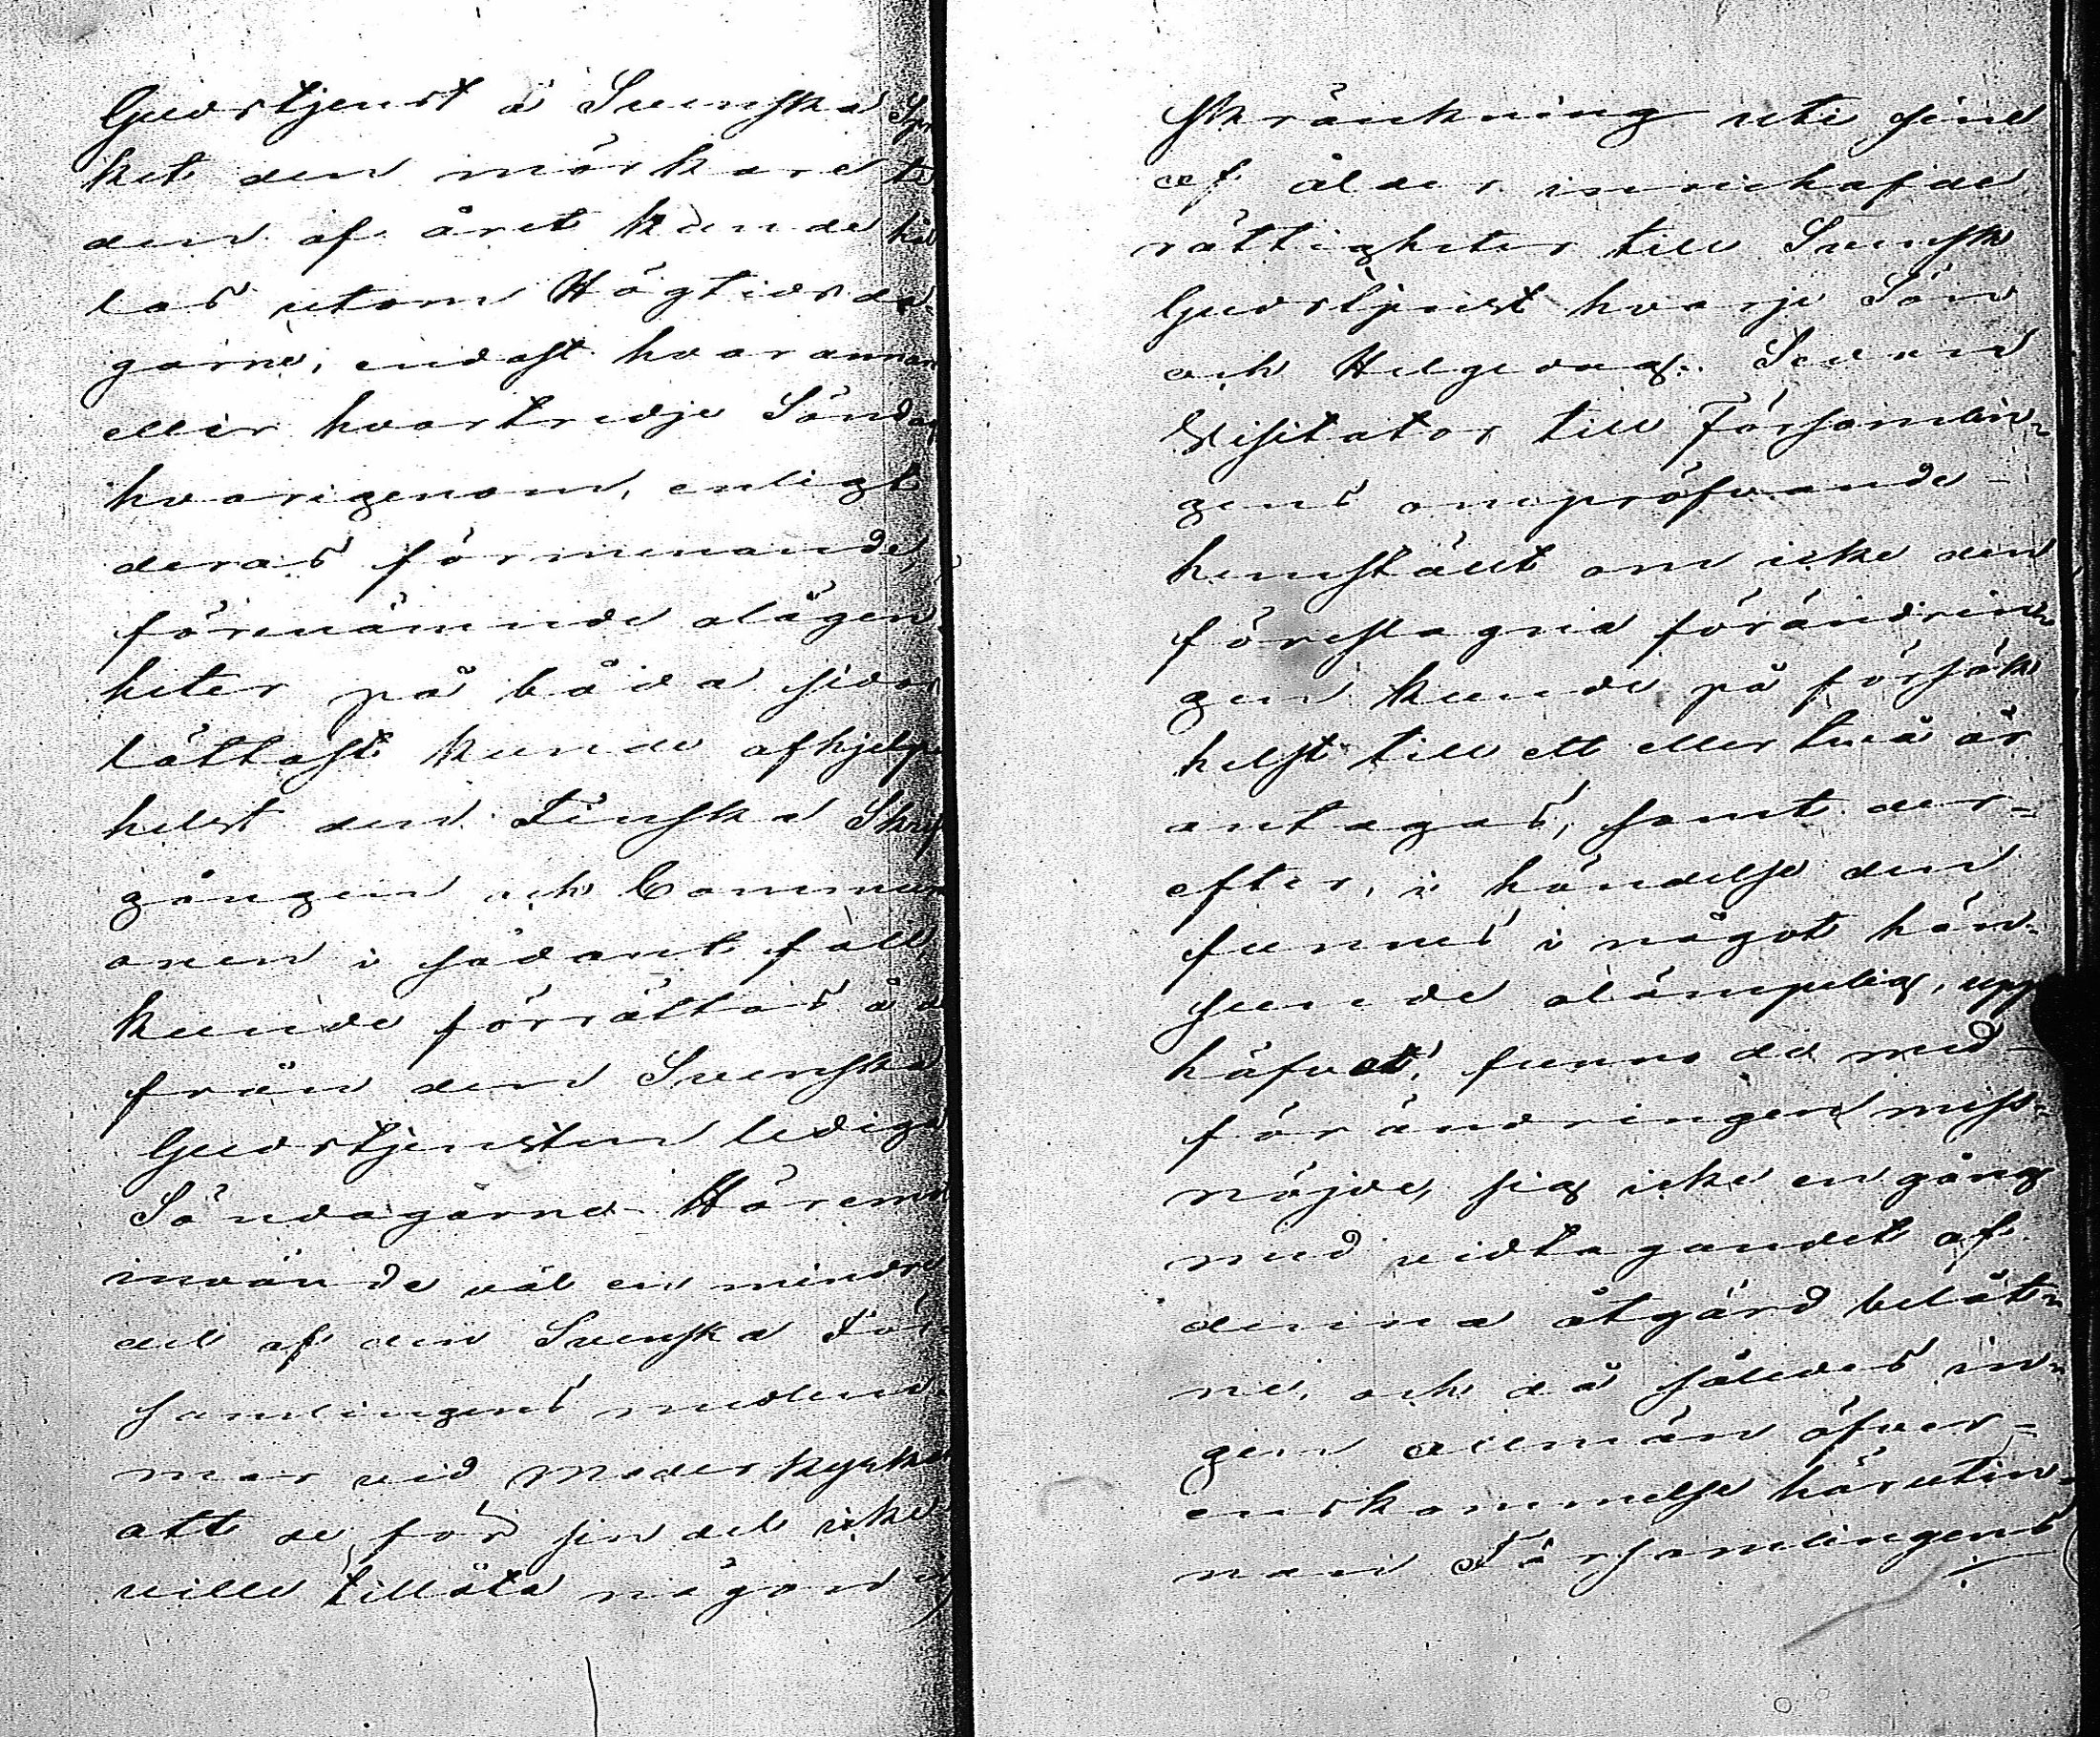 Gudstjenst å Svenska Spr
ket den mörkare ti
den af året kunde hål
las utom Högtidsda
garne, endast hvarannan
eller hvartredje Söndag
hvarigenom, enligt
deras förmenande,
förenämnde olägen
heter på båda sidor
lättast kunde afhjelpa
helst den Finska Skrift
gången och Communi
onen i sådant fall,
kunde förrättas å de
från den Svenska
Gudstjensten lediga
Söndagarne. Häremot
invände väl en mindre
del af den Svenska För
samlingens medlem
mar vid Moderkyrkan
att de för sin del icke
ville tillåta någon in
skränkning uti sine
af ålder innehafde
rättigheter till Svensk
Gudstjenst hvarje Sön
och Helgedag. Sedan
Visitator till Församlin-
gens ompröfvande
hemstält om icke den
föreslagna förändrin-
gen kunde på försök
helst till ett eller två år
antagas, samt der-
efter, i händelse den
funnes i något hän-
seende olämpelig, upp
häfvet, funno de med
förändringen miss-
nöjde, sig icke en gång
med vidtagandet af
denna åtgärd belåt-
ne, och då således in-
gen allmän öfver-
enskommelse härutin-
nan Församlingens